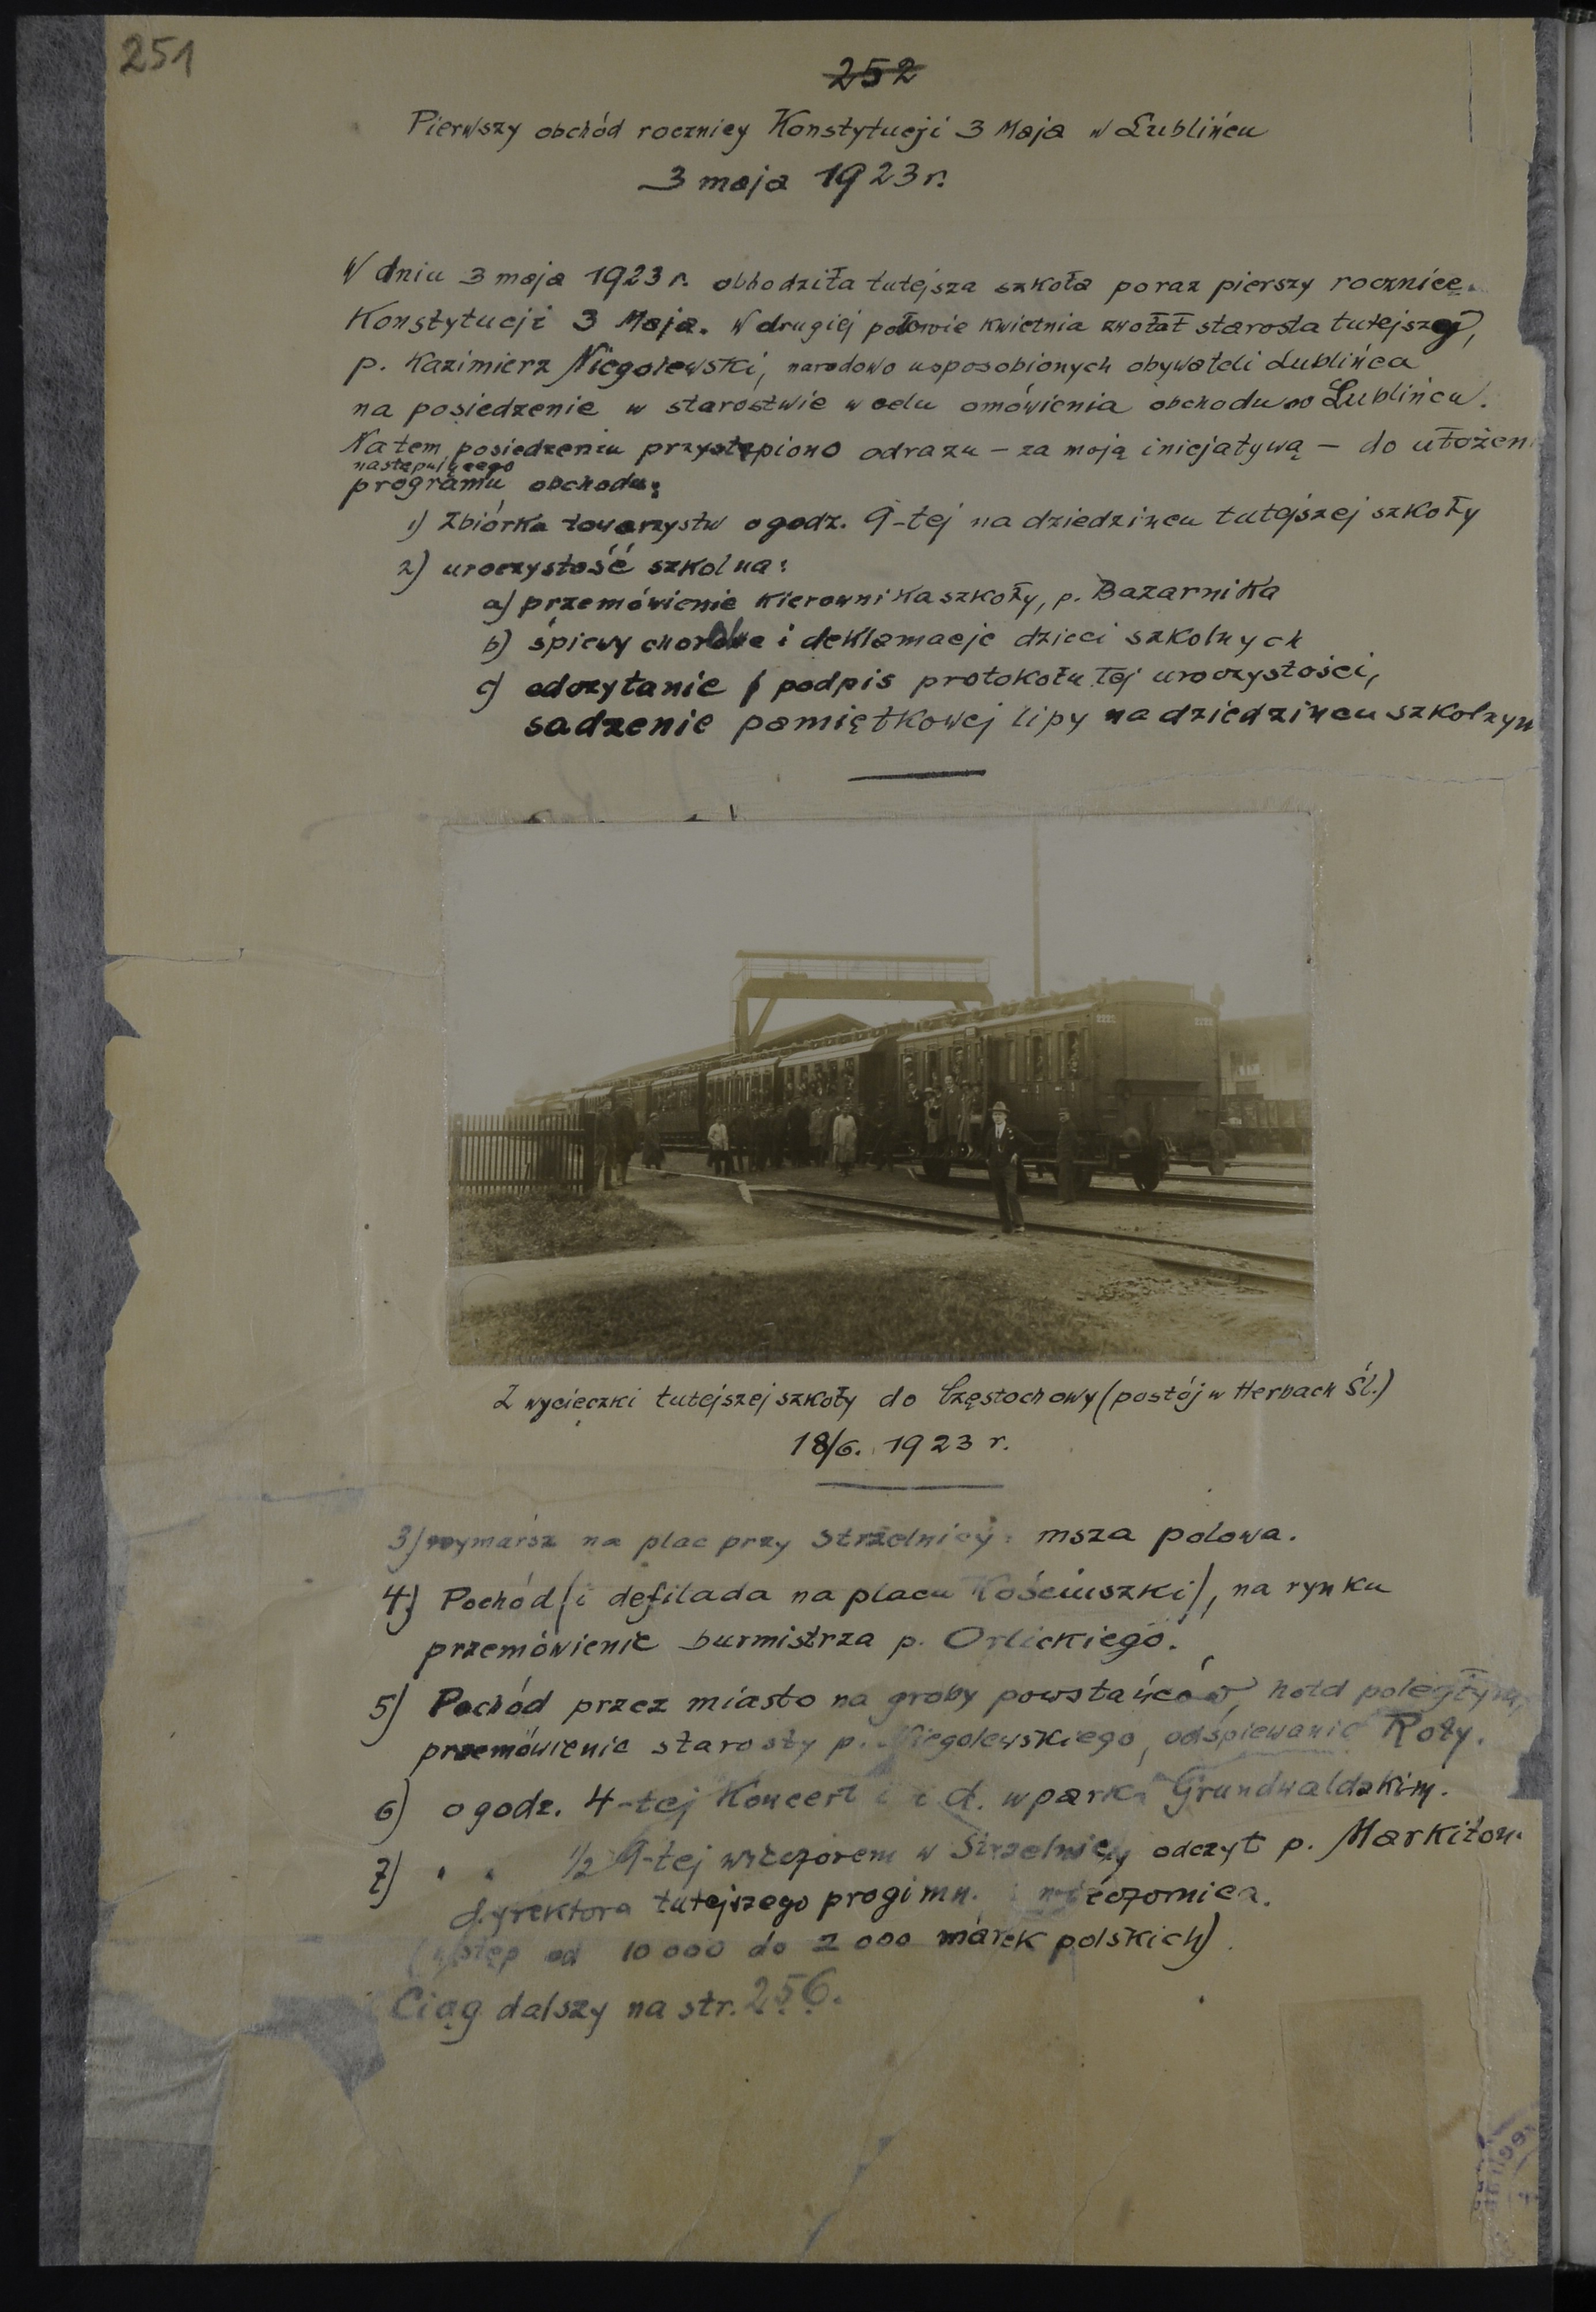 251
252
Pierwszy obchód rocznicy Konstytucji 3 Maja w Lublińcu
3 maja 1923 r.
W dniu 3 maja 1923 r. obhodziła tutejsza szkoła poraz pierszy rocznicę
Konstytucji 3 Maja. W drugiej połowie kwietnia zwołał starosta tutejszy,
p. Kazimierz Niegolewski, narodowo usposobionych obywateli Lublińca
na posiedzenie w starostwie w celu omówienia obchodu w Lublińcu.
Na tem posiedzeniu przystąpiono odrazu – za moją inicjatywą – do ułożeni
następującego
programu obchodu:
1) Zbiórka towarzystw o godz. 9-tej na dziedzińcu tutejszej szkoły
2) uroczystość szkolna:
a) przemówienie kierownika szkoły, p. Bazarnika
b) śpiewy chóralne i deklamacje dzieci szkolnych
c) odczytanie i podpis protokołu tej uroczystości,
sadzenie pamiętkowej lipy na dziedzińcu szkolnym
2222
2222
Z wycieczki tutejszej szkoły do Częstochowy (postój w Herbach Śl.)
18/6. 1923 r.
3) wymarsz na plac przy Strzelnicy: msza polowa.
4) Pochód (i defilada na placu Kościuszki), na rynku
przemówienie burmistrza p. Orlickiego.
5) Pochód przez miasto na groby powstańców, hołd poległym,
przemówienie starosty p. Niegolewskiego, odśpiewanie Roty.
6) o godz. 4-tej Koncert i t. d. w parku Grundwaldzkim.
7) " " 1/2 9-tej wieczorem w Strzelnicy odczyt p. Markiton
dyrektora tutejszego progimn. i wieczornica.
(wstęp od 10 000 do 2 000 marek polskich)
Ciąg dalszy na str. 256.